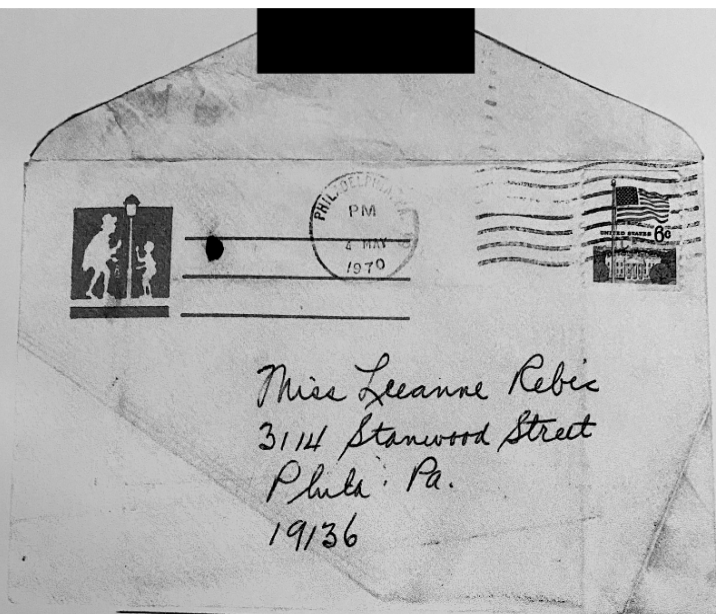 PHILADELPHIA, PA.
PM
4 MAY
1970
UNITED STATES 6c
Miss Leeanne Rebic
3114 Stanwood Street
Phila. Pa.
19136